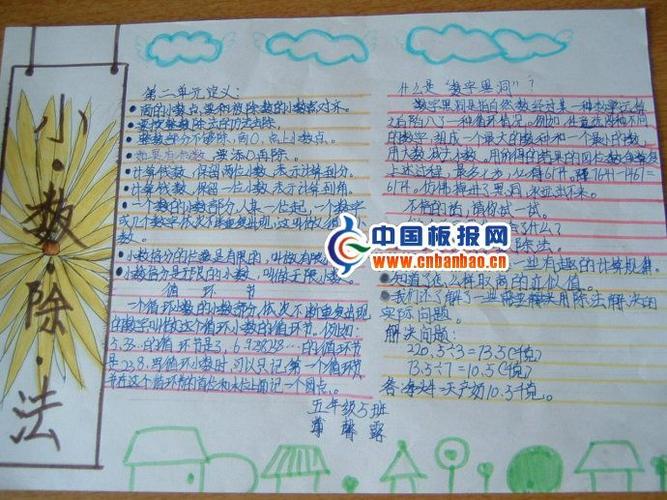 小·数·除·法
第二单元定义:
●商的小数点要和被除数的小数点对齐。
●要按整数除法的方法除。
●整数部分不够除,商0,点上小数点。
●如果有余数,要添0再除。
●计算钱数,保留两位小数,表示计算到分。
●计算钱数,保留一位小数,表示计算到角。
●一个数的小数部分,从某一位起,一个数字
或几个数字依次不断重复出现,这叫做
数。
●小数部分的位数是有限的,叫做有限
●小数部分是无限的小数,叫做无限小数。
循环节
一个循环小数的小数部分,依次不断重复出现
的数字叫做这个循环小数的循环节。例如:
5.33…的循环节是3,6.9258258…的循环节
是258,写循环小数时,可以只记第一个循环节,
并在这个循环节的首位和末位上面记一个圆点。
什么是"数字黑洞"?
数字黑洞是指自然数经过某一种数学运算
之后陷入了一种循环情况。例如,任意选四个不同
的数字,组成一个最大的数和一个最小的数,
用大数减去小数。用所得的结果的四位数重复
上述过程,最多七步,必得6174,7641-1467=
6174。仿佛掉进了黑洞,永远出不来。
不信的话,请你试一试。
什么?
除法。
一些有趣的计算规律。
●知道了怎么样取商的近似值。
●我们还了解了一些需要解决用除法解决的
实际问题。
解决问题:
220.5÷3=73.5(千克)
73.5÷7=10.5(千克)
答:每头牛一天产奶10.5千克。
五年级5班
中国板报网
www.cnbanbao.cn